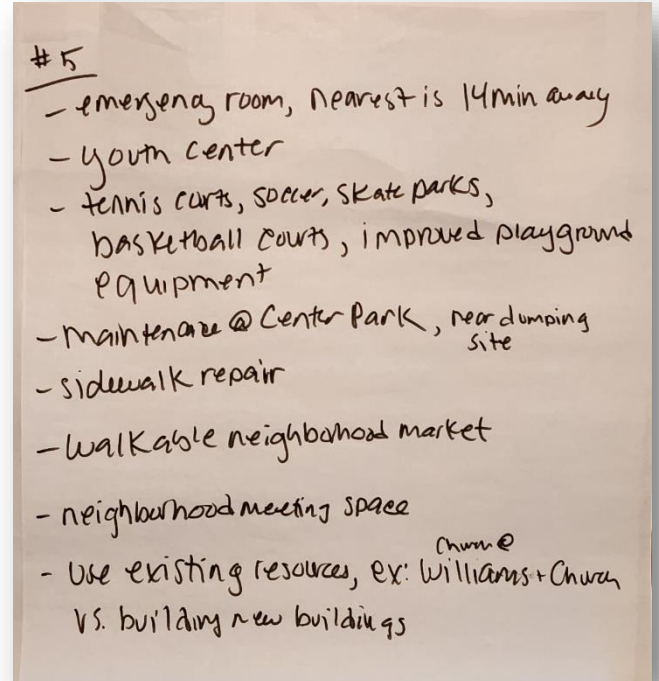 #5
- emergency room, nearest is 14min away
- youth center
- tennis curts, soccer, skate parks,
basketball courts, improved playground
equipment
- maintenance @ Center Park, near dumping
site
- sidewalk repair
- walkable neighborhood market
- neighborhood meeting space
church @
- Use existing resources, ex: Williams + Church
vs. building new buildings